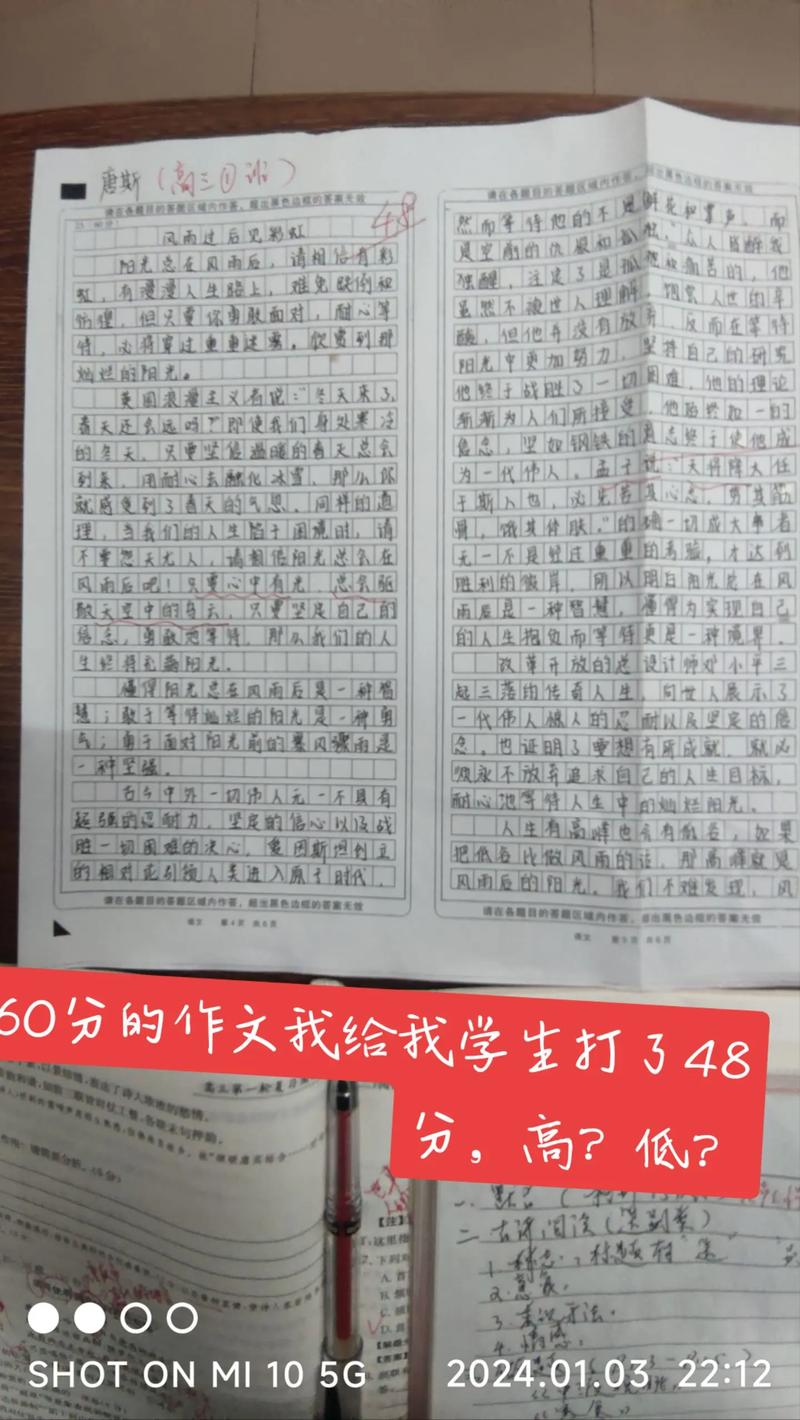 唐斯(高三①班)
请在各题目的答题区域内作答,超出黑色边框的答案无效
48
风雨过后见彩虹
阳光总在风雨后,请相信有彩
虹,有漫漫人生路上,难免跌倒和
彷徨,但只要你勇敢面对,耐心等
待,必将穿过重重迷雾。欣赏到那
灿烂的阳光。
英国浪漫主义者说:“冬天来了,
春天还会远吗?”即使我们身处寒冷
的冬天,只要坚信温暖的春天总会
到来,用耐心去融化冰雪,那么你
就感受到了春天的气息。同样的道
理,当我们的人生陷于困境时,请
不要怨天尤人,请相信阳光总会在
风雨后吧!只要心中有光,总会驱
散天空中的乌云,只要坚定自己的
信念,勇敢地等待,那么我们的人
生终将充满阳光。
懂得阳光总在风雨后是一种智
慧;敢于等待灿烂的阳光是一种勇
气;勇于面对阳光前的暴风骤雨是
一种坚强。
古今中外一切伟人无一不具有
超强的忍耐力,坚定的信心以及战
胜一切困难的决心,爱因斯坦创立
的相对论引领人类进入原子时代,
请在各题目的答题区域内作答,超出黑色边框的答案无效
语文 第4页 共6页
请在各题目的答题区域内作答,超出黑色边框的答案无效
然而等待他的不是鲜花和掌声,而
是空前的仇恨和
独醒,注定了是孤独和痛苦的,他
虽然不被世人理解,饱尝人世的辛
酸,但他并没有放弃,反而在等待
阳光中更加努力,坚持自己的研究
他终于战胜了一切困难,他的理论
渐渐为人们所接受。他始终如一的
信念,坚如钢铁的意志终于使他成
为一代伟人。孟子说:“天将降大任
于斯人也,必先苦其心志,劳其筋
骨,饿其体肤。”的确一切成大事者
无一不是经过重重的考验,才达到
胜利的彼岸。所以明白阳光总在风
雨后是一种智慧,懂得为实现自己
的人生抱负而等待更是一种境界。
改革开放的总设计师邓小平三
起三落的传奇人生,向世人展示了
一代伟人惊人的忍耐以及坚定的信
念,也证明了要想有所成就,就必
须永不放弃追求自己的人生目标,
耐心地等待人生中的灿烂阳光。
人生有高峰也会有低谷,如果
把低谷比做风雨的话,那高峰就是
风雨后的阳光。我们不难发现,风
请在各题目的答题区域内作答,超出黑色边框的答案无效
语文 第5页 共6页
60分的作文我给我学生打了48
分,高?低?
高三第一轮复习
(6分)
【注】
二、古诗阅读(类别类)
2.意象。
3.表现手法。
4.情感。
SHOT ON MI 10 5G
2024.01.03 22:12